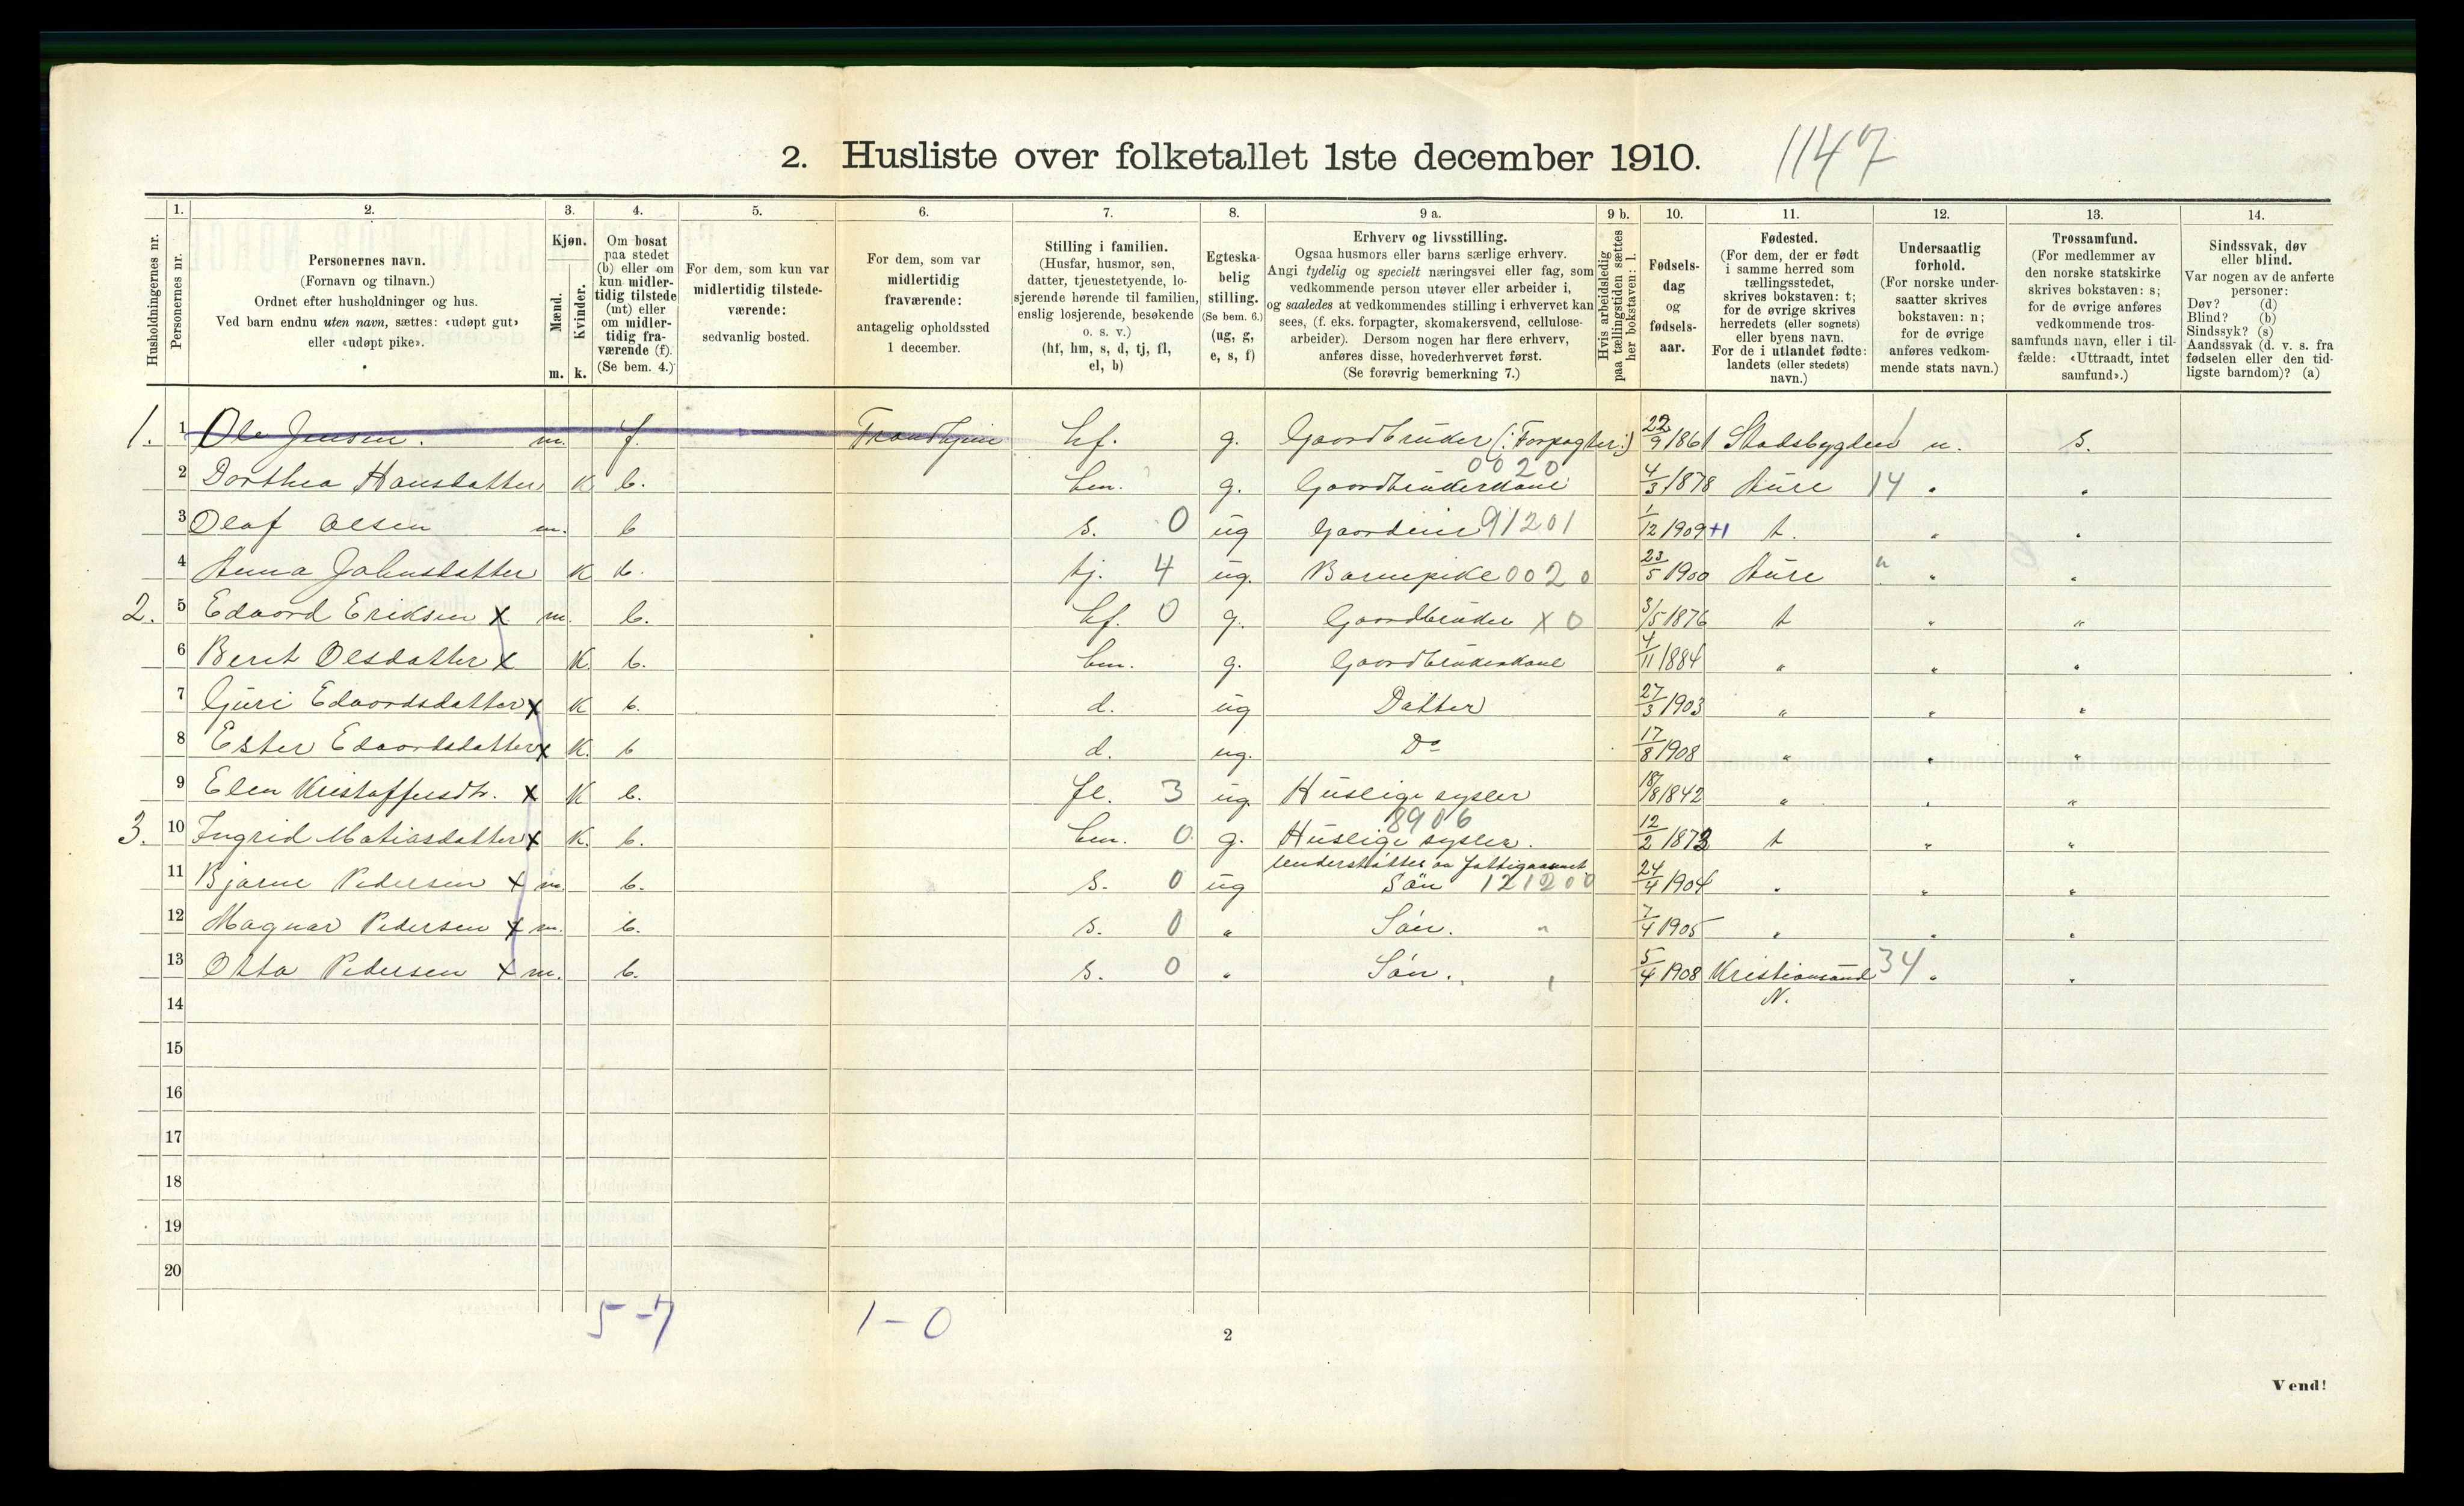 2. Husliste over folketallet 1ste december 1910. 1147
1. 2. 3. 4. 5. 6. 7. 8. 9 a. 9 b. 10. 11. 12. 13. 14.
Husholdningernes nr.
Personernes nr.
Personernes navn.
(Fornavn og tilnavn.)
Ordnet efter husholdninger og hus.
Ved barn endnu uten navn, sættes: «udøpt gut»
eller «udøpt pike».
Kjøn.
Mænd.
Kvinder.
m. k.
Om bosat
paa stedet
(b) eller om
kun midler-
tidig tilstede
(mt) eller
om midler-
tidig fra-
værende (f).
(Se bem. 4.)
For dem, som kun var
midlertidig tilstede-
værende:
sedvanlig bosted.
For dem, som var
midlertidig
fraværende:
antagelig opholdssted
1 december.
Stilling i familien.
(Husfar, husmor, søn,
datter, tjenestetyende, lo-
sjerende hørende til familien,
enslig losjerende, besøkende
o. s. v.)
(hf, hm, s, d, tj, fl,
el, b)
Egteska-
belig
stilling.
(Se bem. 6.)
(ug, g,
e, s, f)
Erhverv og livsstilling.
Ogsaa husmors eller barns særlige erhverv.
Angi tydelig og specielt næringsvei eller fag, som
vedkommende person utøver eller arbeider i,
og saaledes at vedkommendes stilling i erhvervet kan
sees, (f. eks. forpagter, skomakersvend, cellulose-
arbeider). Dersom nogen har flere erhverv,
anføres disse, hovederhvervet først.
(Se forøvrig bemerkning 7.)
Hvis arbeidsledig
paa tællingstiden sættes
her bokstaven: l.
Fødsels-
dag
og
fødsels-
aar.
Fødested.
(For dem, der er født
i samme herred som
tællingsstedet,
skrives bokstaven: t;
for de øvrige skrives
herredets (eller sognets)
eller byens navn.
For de i utlandet fødte:
landets (eller stedets)
navn.)
Undersaatlig
forhold.
(For norske under-
saatter skrives
bokstaven: n;
for de øvrige
anføres vedkom-
mende stats navn.)
Trossamfund.
(For medlemmer av
den norske statskirke
skrives bokstaven: s;
for de øvrige anføres
vedkommende tros-
samfunds navn, eller i til-
fælde: «Uttraadt, intet
samfund».)
Sindssvak, døv
eller blind.
Var nogen av de anførte
personer:
Døv? (d)
Blind? (b)
Sindssyk? (s)
Aandssvak (d. v. s. fra
fødselen eller den tid-
ligste barndom)? (a)
1. 1 Ole Jensen. m. f. Trondhjem hf. g. Gaardbruker (: Forpagter:) 22/9 1861 Stadsbygden 1 n. s.
0020
2 Dorthea Hansdatter K b. hm. g. Gaardbrukerkone 4/3 1878 Aure 14 " "
3 Olaf Olsen m. b s. 0 ug 91201 1/12 1909 +1 t. " "
4 Anna Johnsdatter K b. tj. 4 ug. Barnepike 0020 23/5 1900 Aure " " "
2. 5 Edvard Eriksen x m. b. hf. 0 g. Gaardbruker x 0 3/5 1876 t " "
6 Beret Olsdatter x K. b. hm. g. Gaardbrukerkone 4/11 1884 " " "
7 Guri Edvardsdatter x K b. d. ug Datter 27/3 1903 " " "
8 Ester Edvardsdatter x K. b d. ug. Do 17/8 1908 " " "
9 Elen Kristoffersdtr. x K b. fl. 3 ug. Huslige sysler 18/8 1842 " " "
8906
3. 10 Ingrid Matiasdatter x K. b. hm. 0 g. Huslige sysler. 12/2 1873 t " "
understøttes av Fattigvæsnet
11 Bjarne Pedersen x m. b. s. 0 ug Søn 121200 24/4 1904 " " "
12 Magnar Pedersen x m. b. s. 0 " Søn. " 7/4 1905 " " "
13 Otto Pedersen x m. b. s. 0 " Søn. 5/4 1908 Kristiansund 34 " "
N.
14
15
16
17
18
19
20
5-7 1-0
2
Vend!